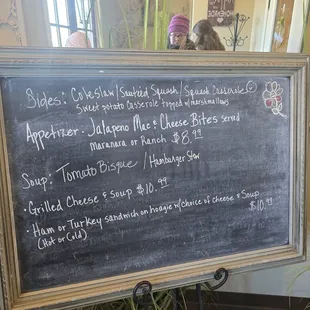 Sides: Coleslaw/Sauteed Squash/Squash Casserole
Sweet potato Casserole topped w/marshmallows
Appetizer: Jalapeno Mac & Cheese Bites served
maranara or Ranch $8.99
Soup: Tomato Bisque / Hamburger Stew
• Grilled Cheese & Soup $10.99
• Ham or Turkey sandwich on hoagie w/choice of cheese & Soup
(Hot or Cold) $10.99